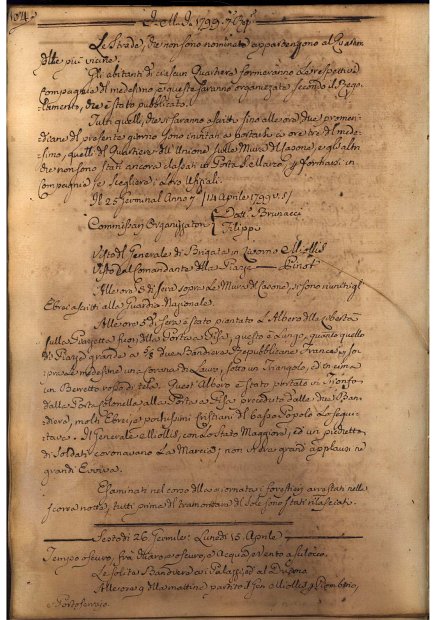 104.
1799
Le Strade, che non sono nominate appartengono al Quartiere
più vicino.
Gli abitanti di ciascun Quartiere formeranno le respettive
Compagnie del medesimo, e queste saranno organizzate secondo il Rego-
lamento, che è stato pubblicato.
Tutti quelli, che si saranno ascritti fino alle ore due promeri-
diane del presente giorno sono invitati a portarsi a ore tre del mede-
simo, quelli del Quartiere dell'Unione sulle Mura del Casone, e gli altri
che non sono stati ancora classati in Porta S. Marco per formarsi in
Compagnie, e scegliere i loro Ufiziali.
Il 25 Germinal Anno 7 (14 Aprile 1799 v. s.)
Commissarj Organizzatori { Dott. Brunacci
Filippi
Visto dal Generale di Brigata in Livorno Miollis
Visto dal Comandante della Piazza
Alle ore 5 di sera sopra Le Mura del Casone, si sono riuniti gl'
Ebrei ascritti alla Guardia Nazionale.
Alle ore 6 di sera è stato piantato L'Albero della Libertà
sulla Piazzetta fuori della Porta a Pisa, questo è Lungo, quanto quello
di Piazza grande a due Bandiere Repubblicane Francesi,
una Corona di Lauro, sotto un Triangolo, ed in cima
un Berretto rosso di tela. Quest'Albero è stato portato in Trionfo
dalla Porta Colonnella alla Porta a Pisa preceduto dalle due Ban-
diere, molti Ebrei, e pochissimi Cristiani del basso Popolo Lo segui-
tavano. Il Generale Miollis, con Lo Stato Maggiore, ed un picchetto
di Soldati coronavano La Marcia; non vi era grandi applausi ne
grandi Evviva.
Esaminati nel corso della giornata i forestieri arrestati nella
scorsa notte, tutti prima di tramontare il Sole sono stati rilasciati.
Sestodì 26. Germile: Lunedì 15. Aprile
Tempo oscuro, fra chiaro e oscuro, e Acqua, e Vento a Scilocco.
Le solite Bandiere ai Palazzi, ed al
Alle ore 9 della mattina partito il Gen. Miollis per Piombino,
e Portoferrajo.